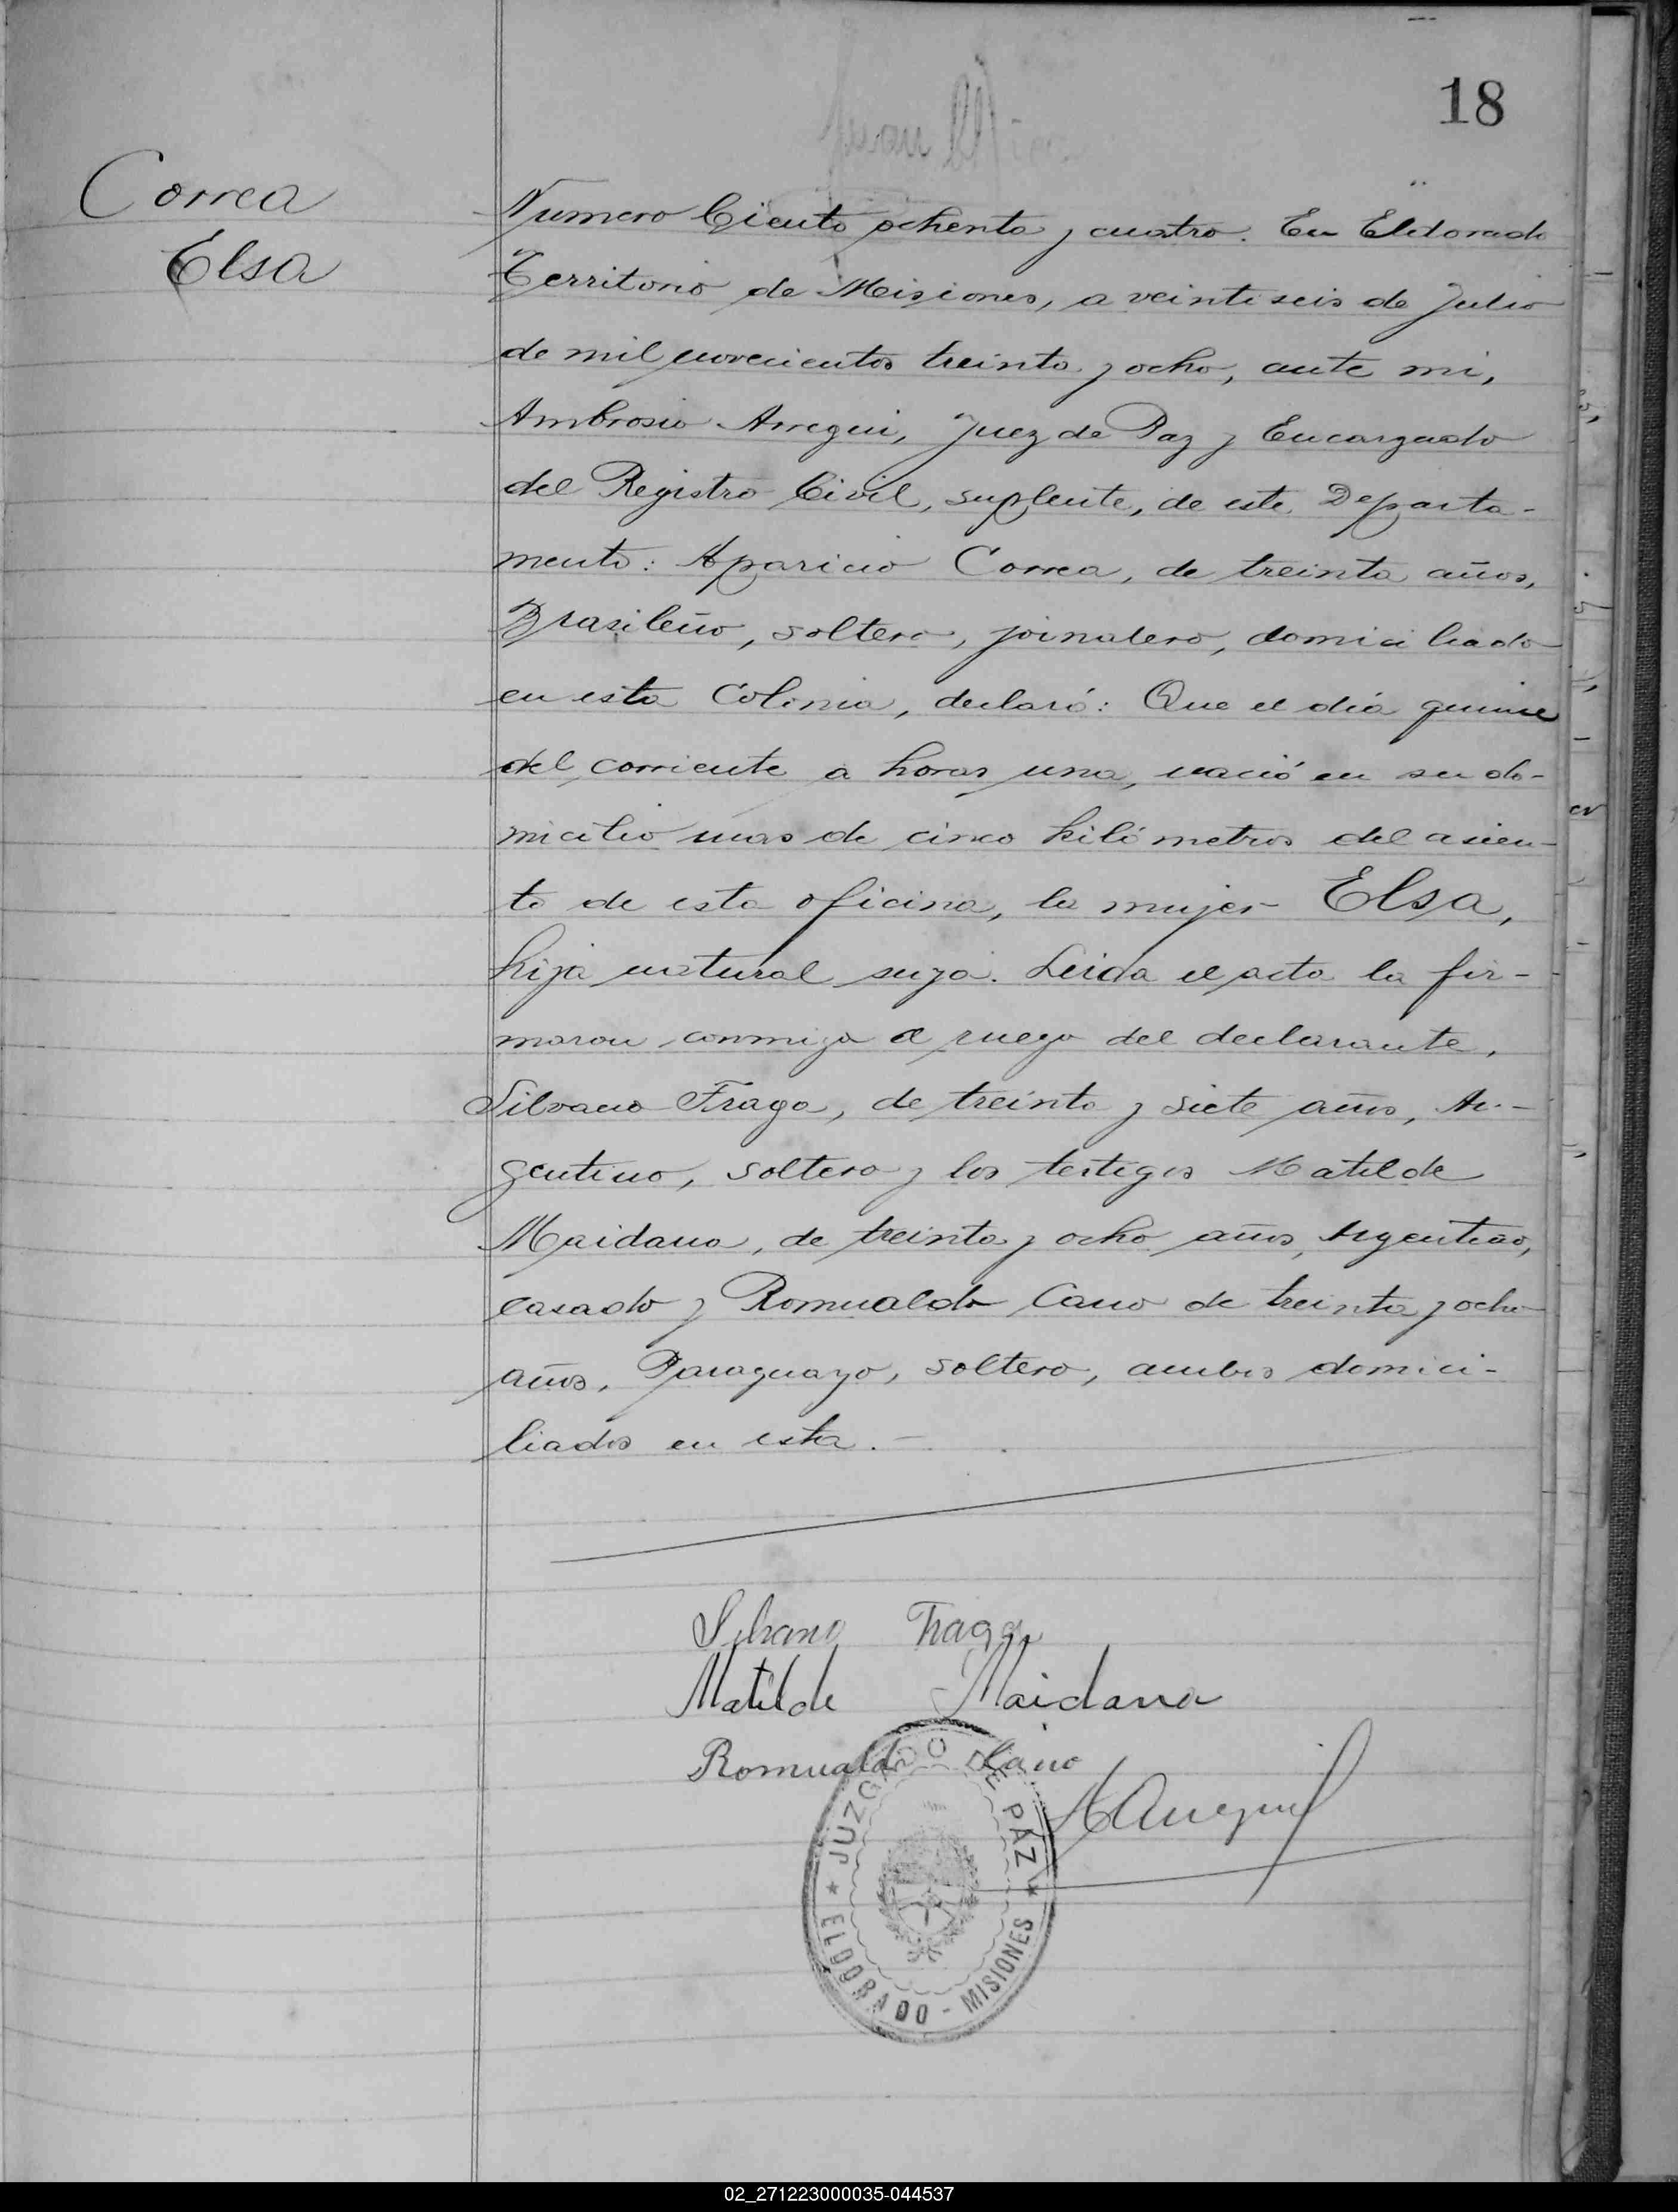 18
Correa
Elsa
Numero Ciento ochenta y cuatro. En Eldorado
Territorio de Misiones, a veintiseis de Julio
de mil novecientos treinta y ocho, ante mi,
Ambrosio Arregui, Juez de Paz y Encargado
del Registro Civil, suplente, de este Departa-
mento: Aparicio Correa, de treinta años,
Brasileño, soltero, jornalero, domiciliado
en esta Colonia, declaró: Que el día quince
del corriente a horas una, nació en su do-
micilio mas de cinco kilómetros del asien-
to de esta oficina, la mujer Elsa,
hija natural suya. Leida el acta la fir-
maron conmigo a ruego del declarante,
Silvano Fraga, de treinta y siete años, Ar-
gentino, soltero y los testigos Matilde
Maidana, de treinta y ocho años, Argentino,
casado y Romualdo Cano de treinta y ocho
años, Paraguayo, soltero, ambos domici-
liados en esta.-
Silvano Fraga
Matilde Maidana
Romualdo Cano
AArregui
JUZGADO DE PAZ
ELDORADO - MISIONES
02_271223000035-044537